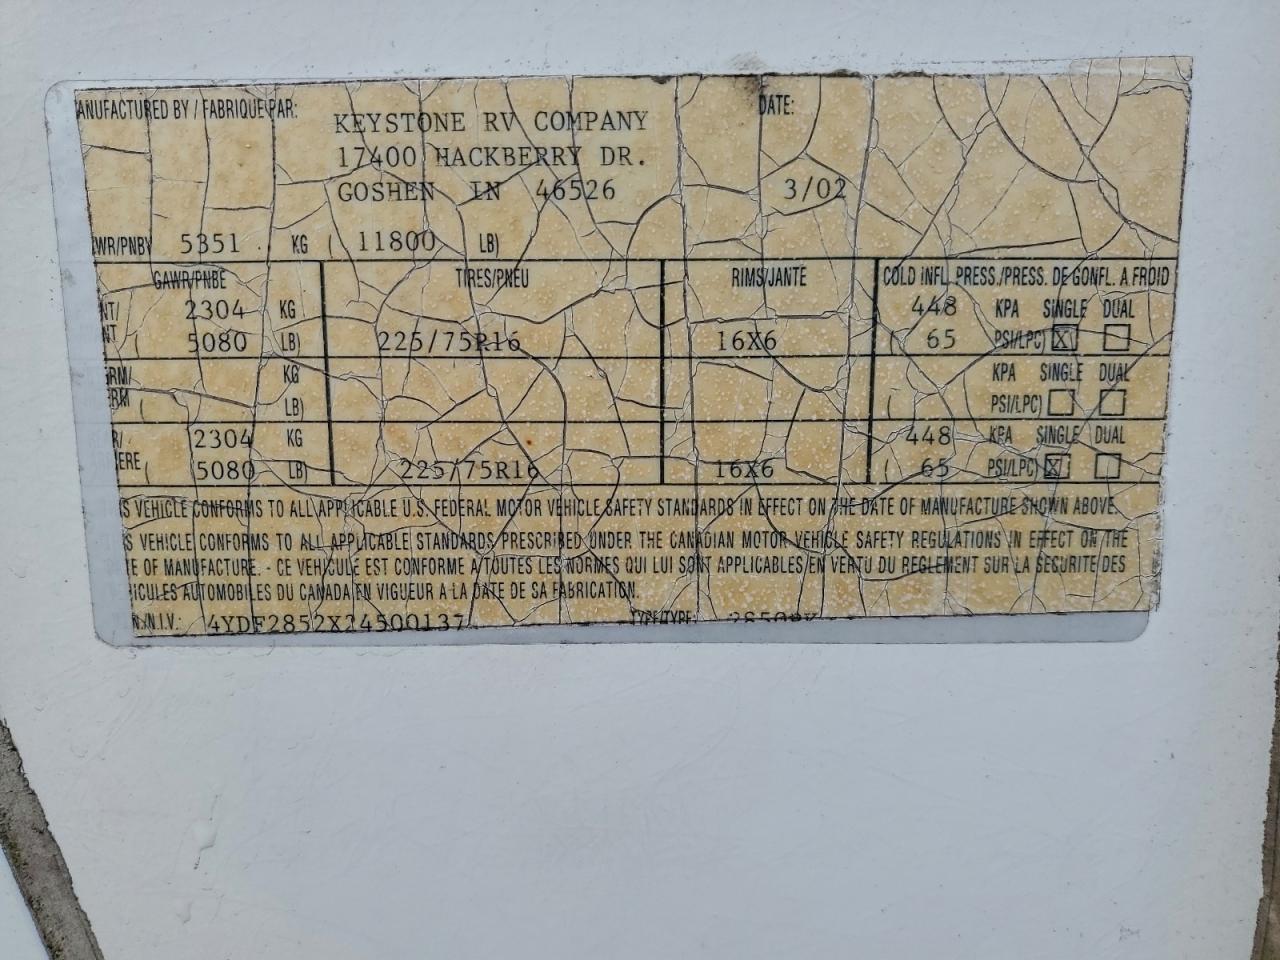 ANUFACTURED BY / FABRIQUE PAR: DATE:
KEYSTONE RV COMPANY
17400 HACKBERRY DR.
GOSHEN IN 46526 3/02
WR/PNBV 5351 KG ( 11800 LB)
GAWR/PNBE TIRES/PNEU RIMS/JANTE COLD INFL. PRESS./PRESS. DE GONFL. A FROID
NT/ 2304 KG 448 KPA SINGLE DUAL
NT ( 5080 LB) 225/75R16 16X6 ( 65 PSI/LPC) X
RM/ KG KPA SINGLE DUAL
ERM ( LB) ( PSI/LPC)
R/ 2304 KG 448 KPA SINGLE DUAL
ERE ( 5080 LB) 225/75R16 16X6 ( 65 PSI/LPC) X
S VEHICLE CONFORMS TO ALL APPLICABLE U.S. FEDERAL MOTOR VEHICLE SAFETY STANDARDS IN EFFECT ON THE DATE OF MANUFACTURE SHOWN ABOVE.
S VEHICLE CONFORMS TO ALL APPLICABLE STANDARDS PRESCRIBED UNDER THE CANADIAN MOTOR VEHICLE SAFETY REGULATIONS IN EFFECT ON THE
TE OF MANUFACTURE. - CE VEHICULE EST CONFORME A TOUTES LES NORMES QUI LUI SONT APPLICABLES EN VERTU DU REGLEMENT SUR LA SECURITE DES
HICULES AUTOMOBILES DU CANADA EN VIGUEUR A LA DATE DE SA FABRICATION.
N./N.I.V.: 4YDF2852X24500137 TYPE/TYPE: